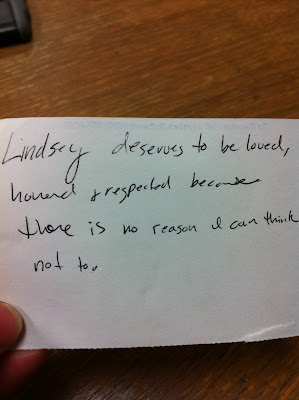 Lindsey deserves to be loved,
honored & respected because
there is no reason I can think
not to.